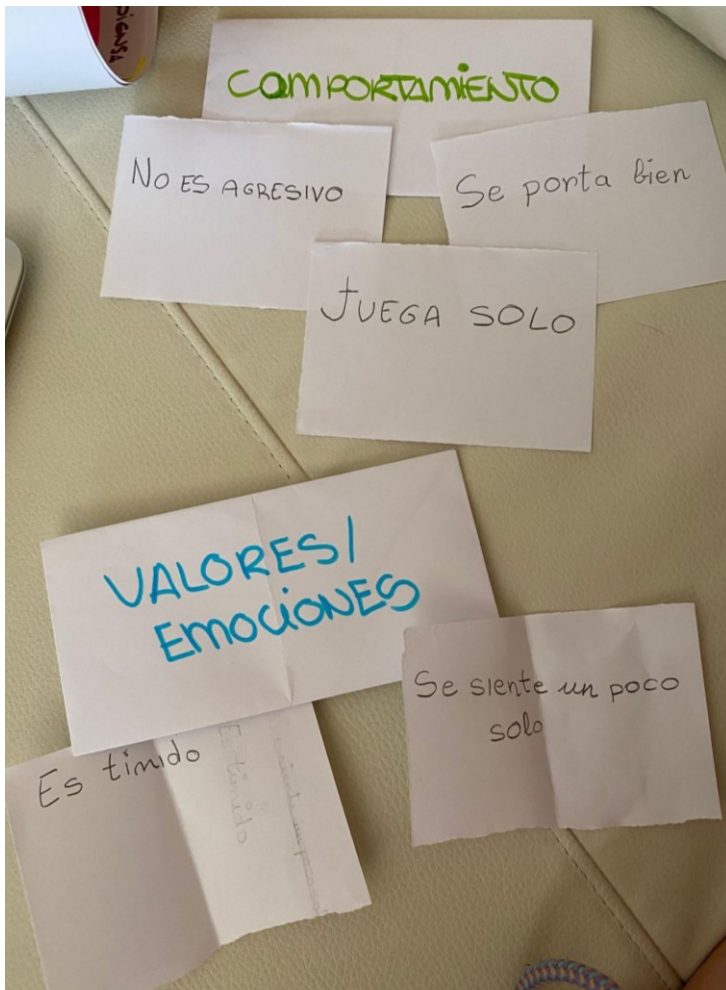 COMPORTAMIENTO
NO ES AGRESIVO
Se porta bien
JUEGA SOLO
VALORES/
EMOCIONES
Se siente un poco
solo
Es tímido
Es tímido